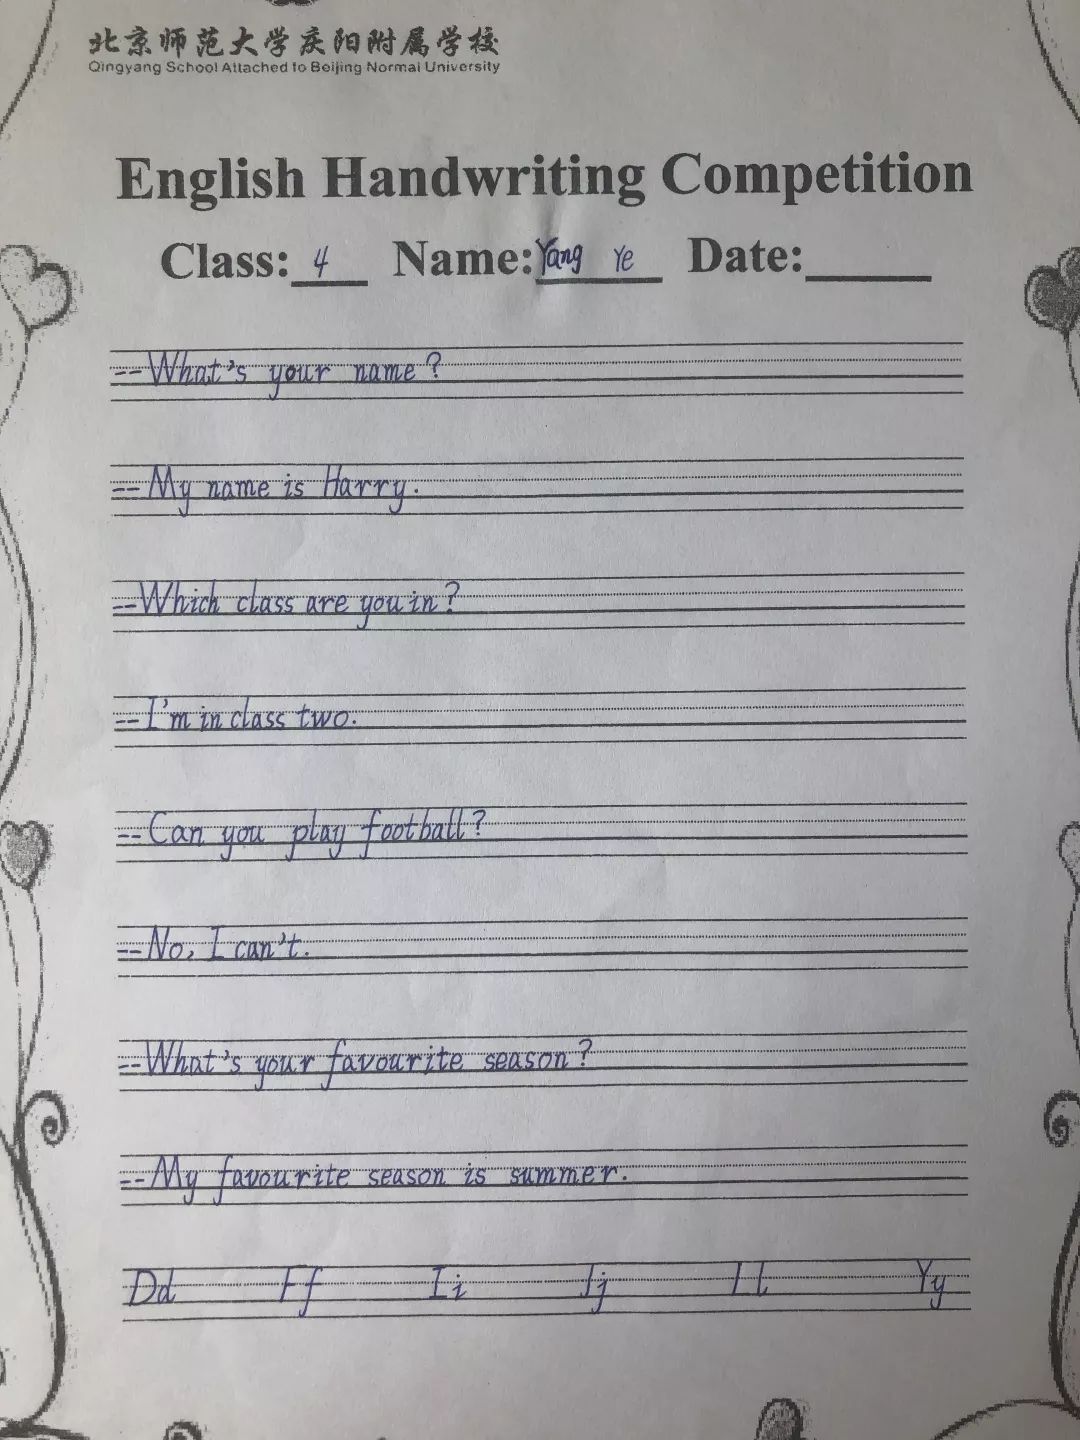 北京师范大学庆阳附属学校
Qingyang School Attached to Beijing Normal University
English Handwriting Competition
Class: 4 Name: Yang Ye Date:
--What's your name?
--My name is Harry.
--Which class are you in?
--I'm in class two.
--Can you play football?
--No, I can't.
--What's your favourite season?
--My favourite season is summer.
Dd Ff Ii Jj Ll Yy